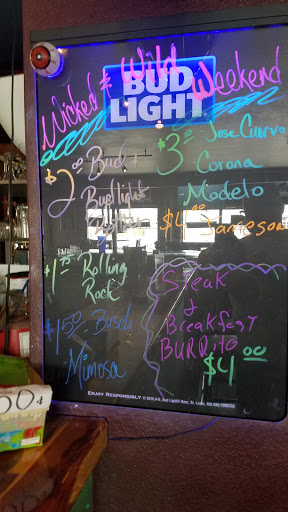 Wicked & Wild
Weekend
BUD
LIGHT
$2.00 Bud +
Budlight
$3.00 Jose Cuervo
Corona
Modelo
$4.00 Jameson
$1.75 Rolling
Rock
$1.50 Busch
Mimosa
Steak
&
Breakfast
BURRITO
$4.00
ENJOY RESPONSIBLY
00¢